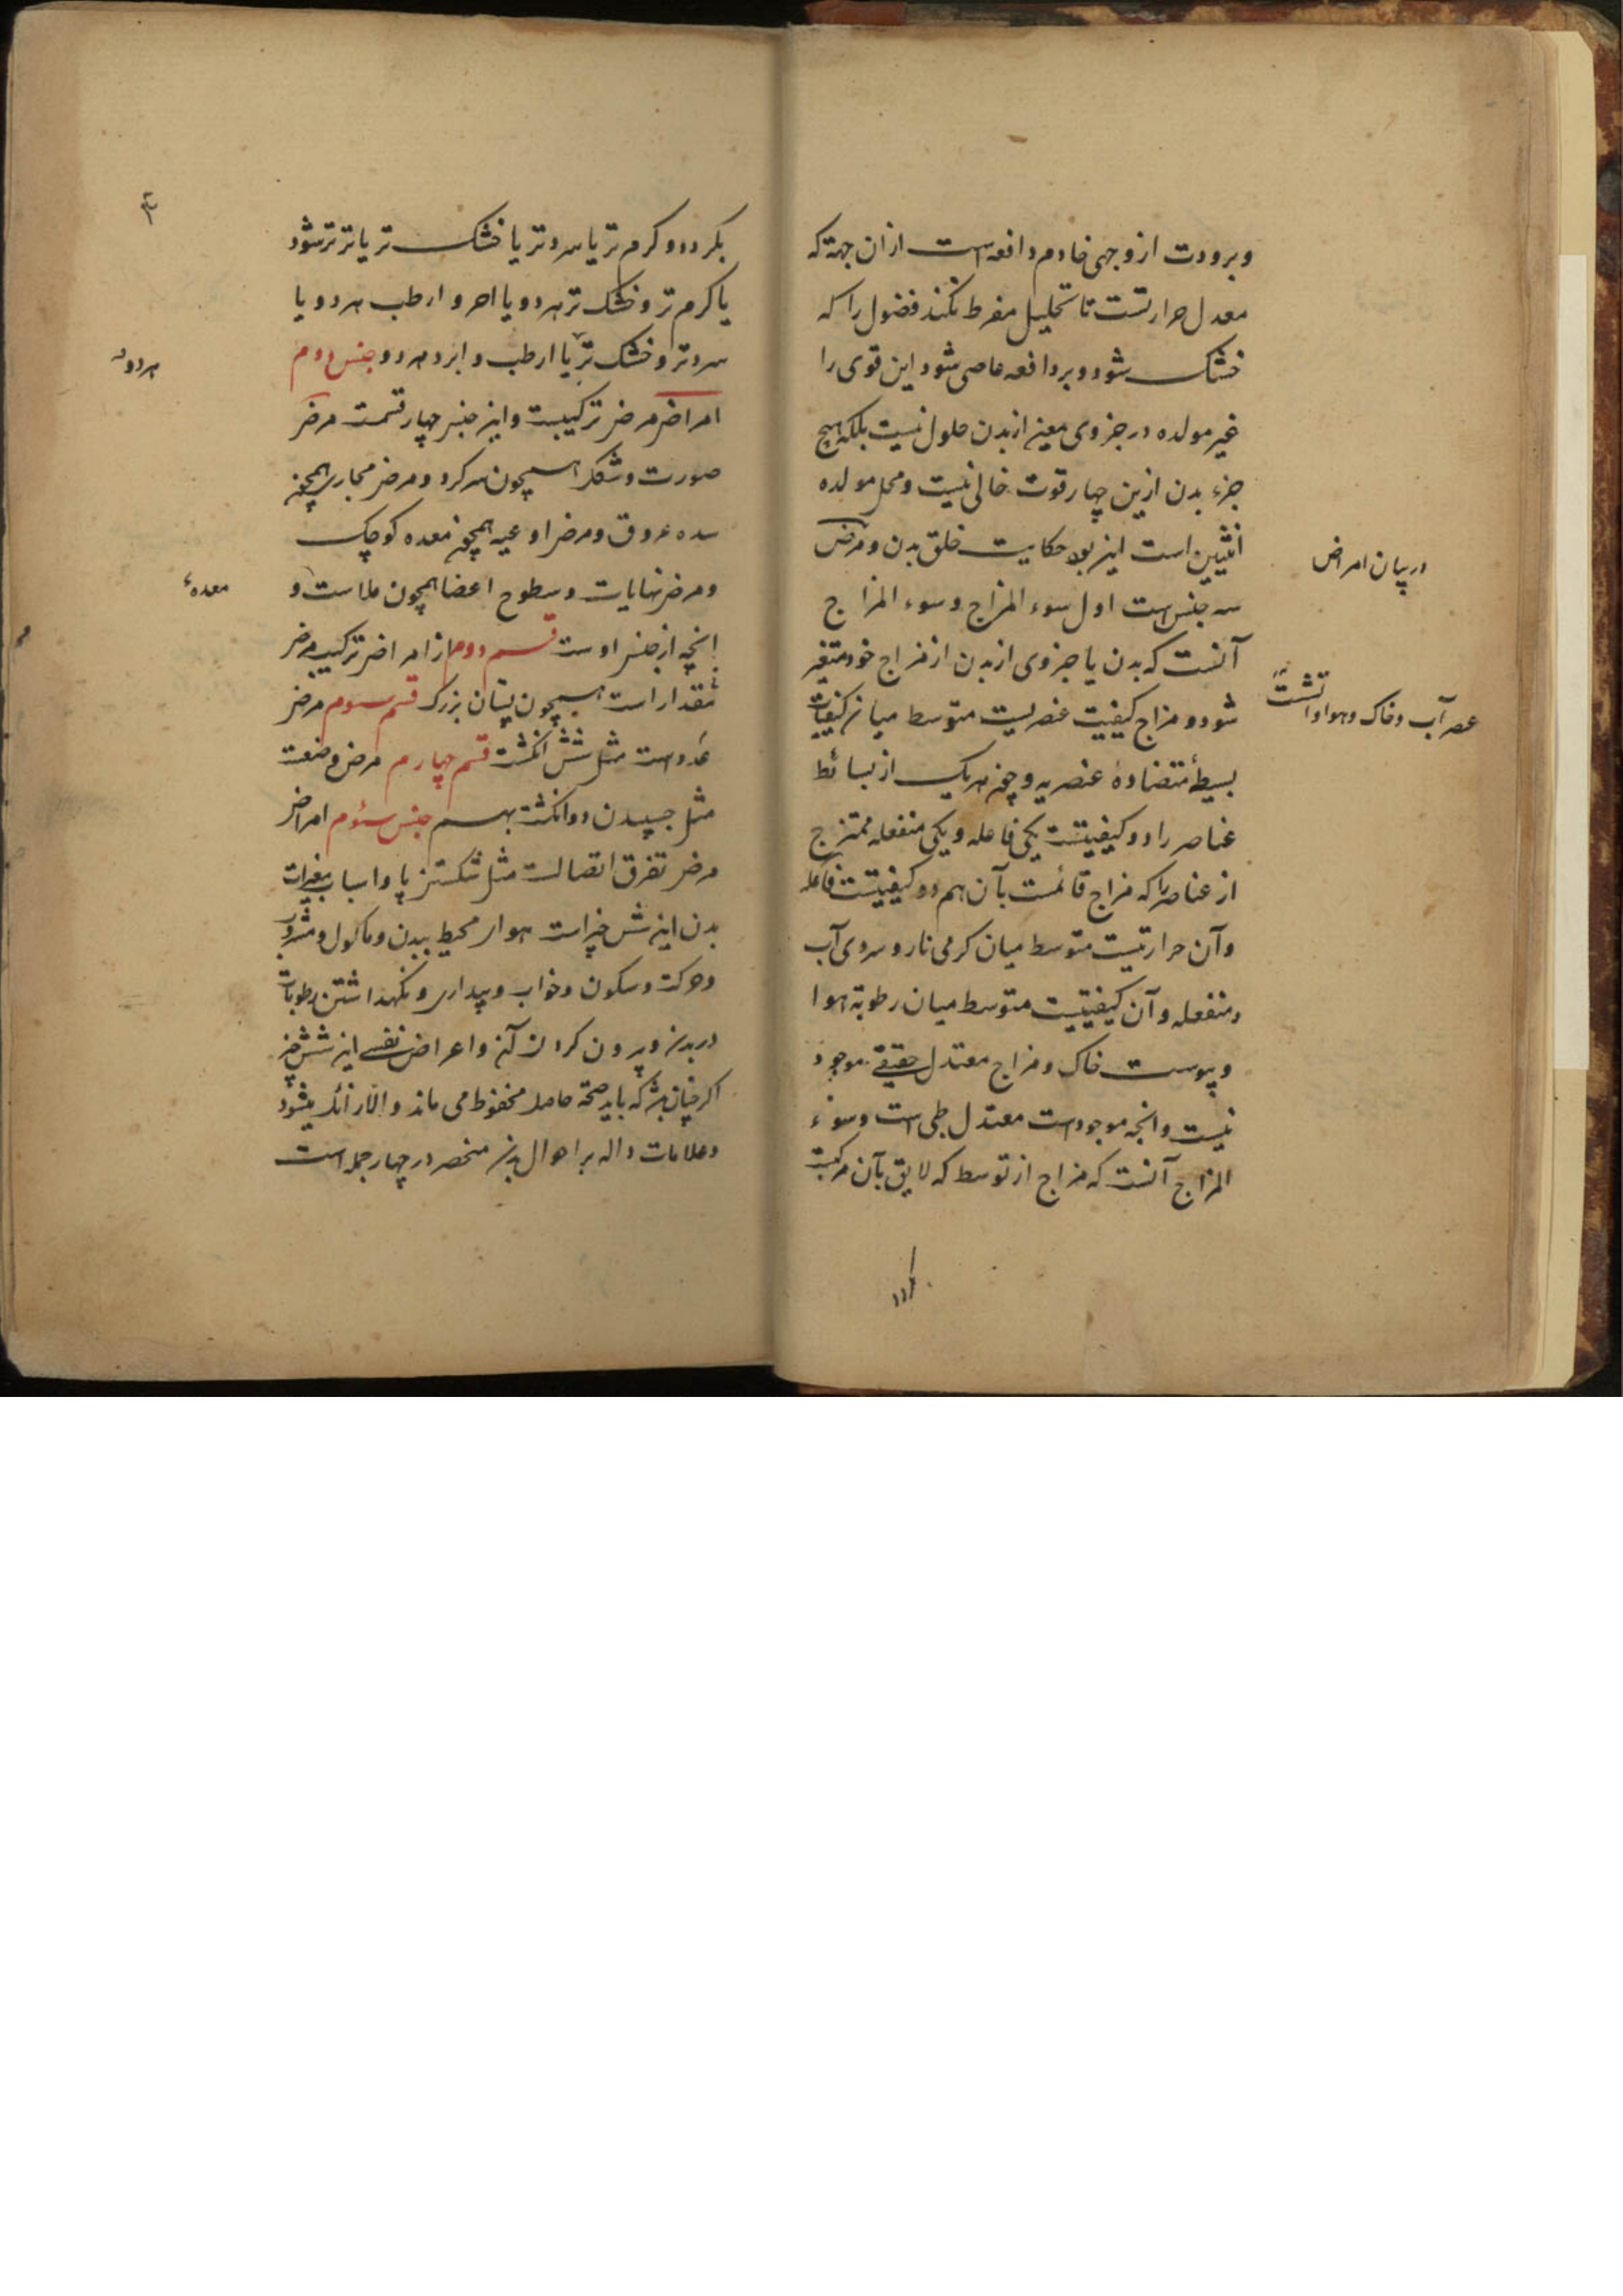 وبرودت از وجهی خادم دافعه است از ان جهة که
معدل حرارتست تا تحلیل مفرط نکند فضول را که
خشک شود و بر دافعه عاصی شود این قوی را
غیر مولده در جزوی معین از بدن حلول نیست بلکه هیچ
جزء بدن ازین چهار قوت خالی نیست و محل مولده
انثیین است این بود حکایت خلق بدن و مرض
در بیان امراض
سه جنس است اول سوء المزاج و سوء المزاج
آنست که بدن یا جزوی از بدن از مزاج خود متغیر
شود و مزاج کیفیت عنصریست متوسط میان کیفیات
عصر آب و خاک و هوا و اتشت
بسیطهٔ متضادهٔ عنصریه و چون هر یک از بسائط
عناصر را دو کیفیتست یکی فاعله و یکی منفعله ممتزج
از عناصر را که مزاج قائمست بآن هم دو کیفیتست فاعله
وآن حرارتیست متوسط میان کرمی نار و سردی آب
ومنفعله و آن کیفیتیست متوسط میان رطوبة هوا
و یبوست خاک و مزاج معتدل حقیقے موجود
نیست وانچه موجودست معتدل طبی است و سوء
المزاج آنست که مزاج از توسط که لایق بآن مرکبت
بکردد و کرم تر یا سردتر یا خشک تر یا تر تر شود
یا کرم تر و خشک تر هر دو یا احر و ارطب هر دو یا
سردتر و خشک تر یا ارطب و ابرد هر دو جنس دوم
هر دو
امراض مرض ترکیبست و این جنس چهار قسمت مرض
صورت و شکل همچون سر کرد و مرض مجاری همچون
سده عروق و مرض اوعیه همچون معده کوچک
معدهٔ
و مرض نهایات و سطوح اعضا همچون ملاست و
انچه از جنس اوست قسم دوم از امراض ترکیب مرض
مقدار است همچون پستان بزرک قسم سوم مرض
عددست مثل شش انکشت قسم چهارم مرض وضعت
مثل چسپیدن دو انکشت بهم جنس سئوم امراض
مرض تفرق اتصالست مثل شکستن پا و اسباب مغیرات
بدن این شش چیز است هوای محیط ببدن و ماکول و مشروب
و حرکت و سکون و خواب و بیداری و نکهداشتن رطوبات
در بدن و بیرون کردن آن و اعراض نفسے این شش چیز
اکر چنان بود که باید صحة حاصل محفوظ می ماند و الا زائل میشود
و علامات داله بر احوال بدن منحصر در چهار جمله است